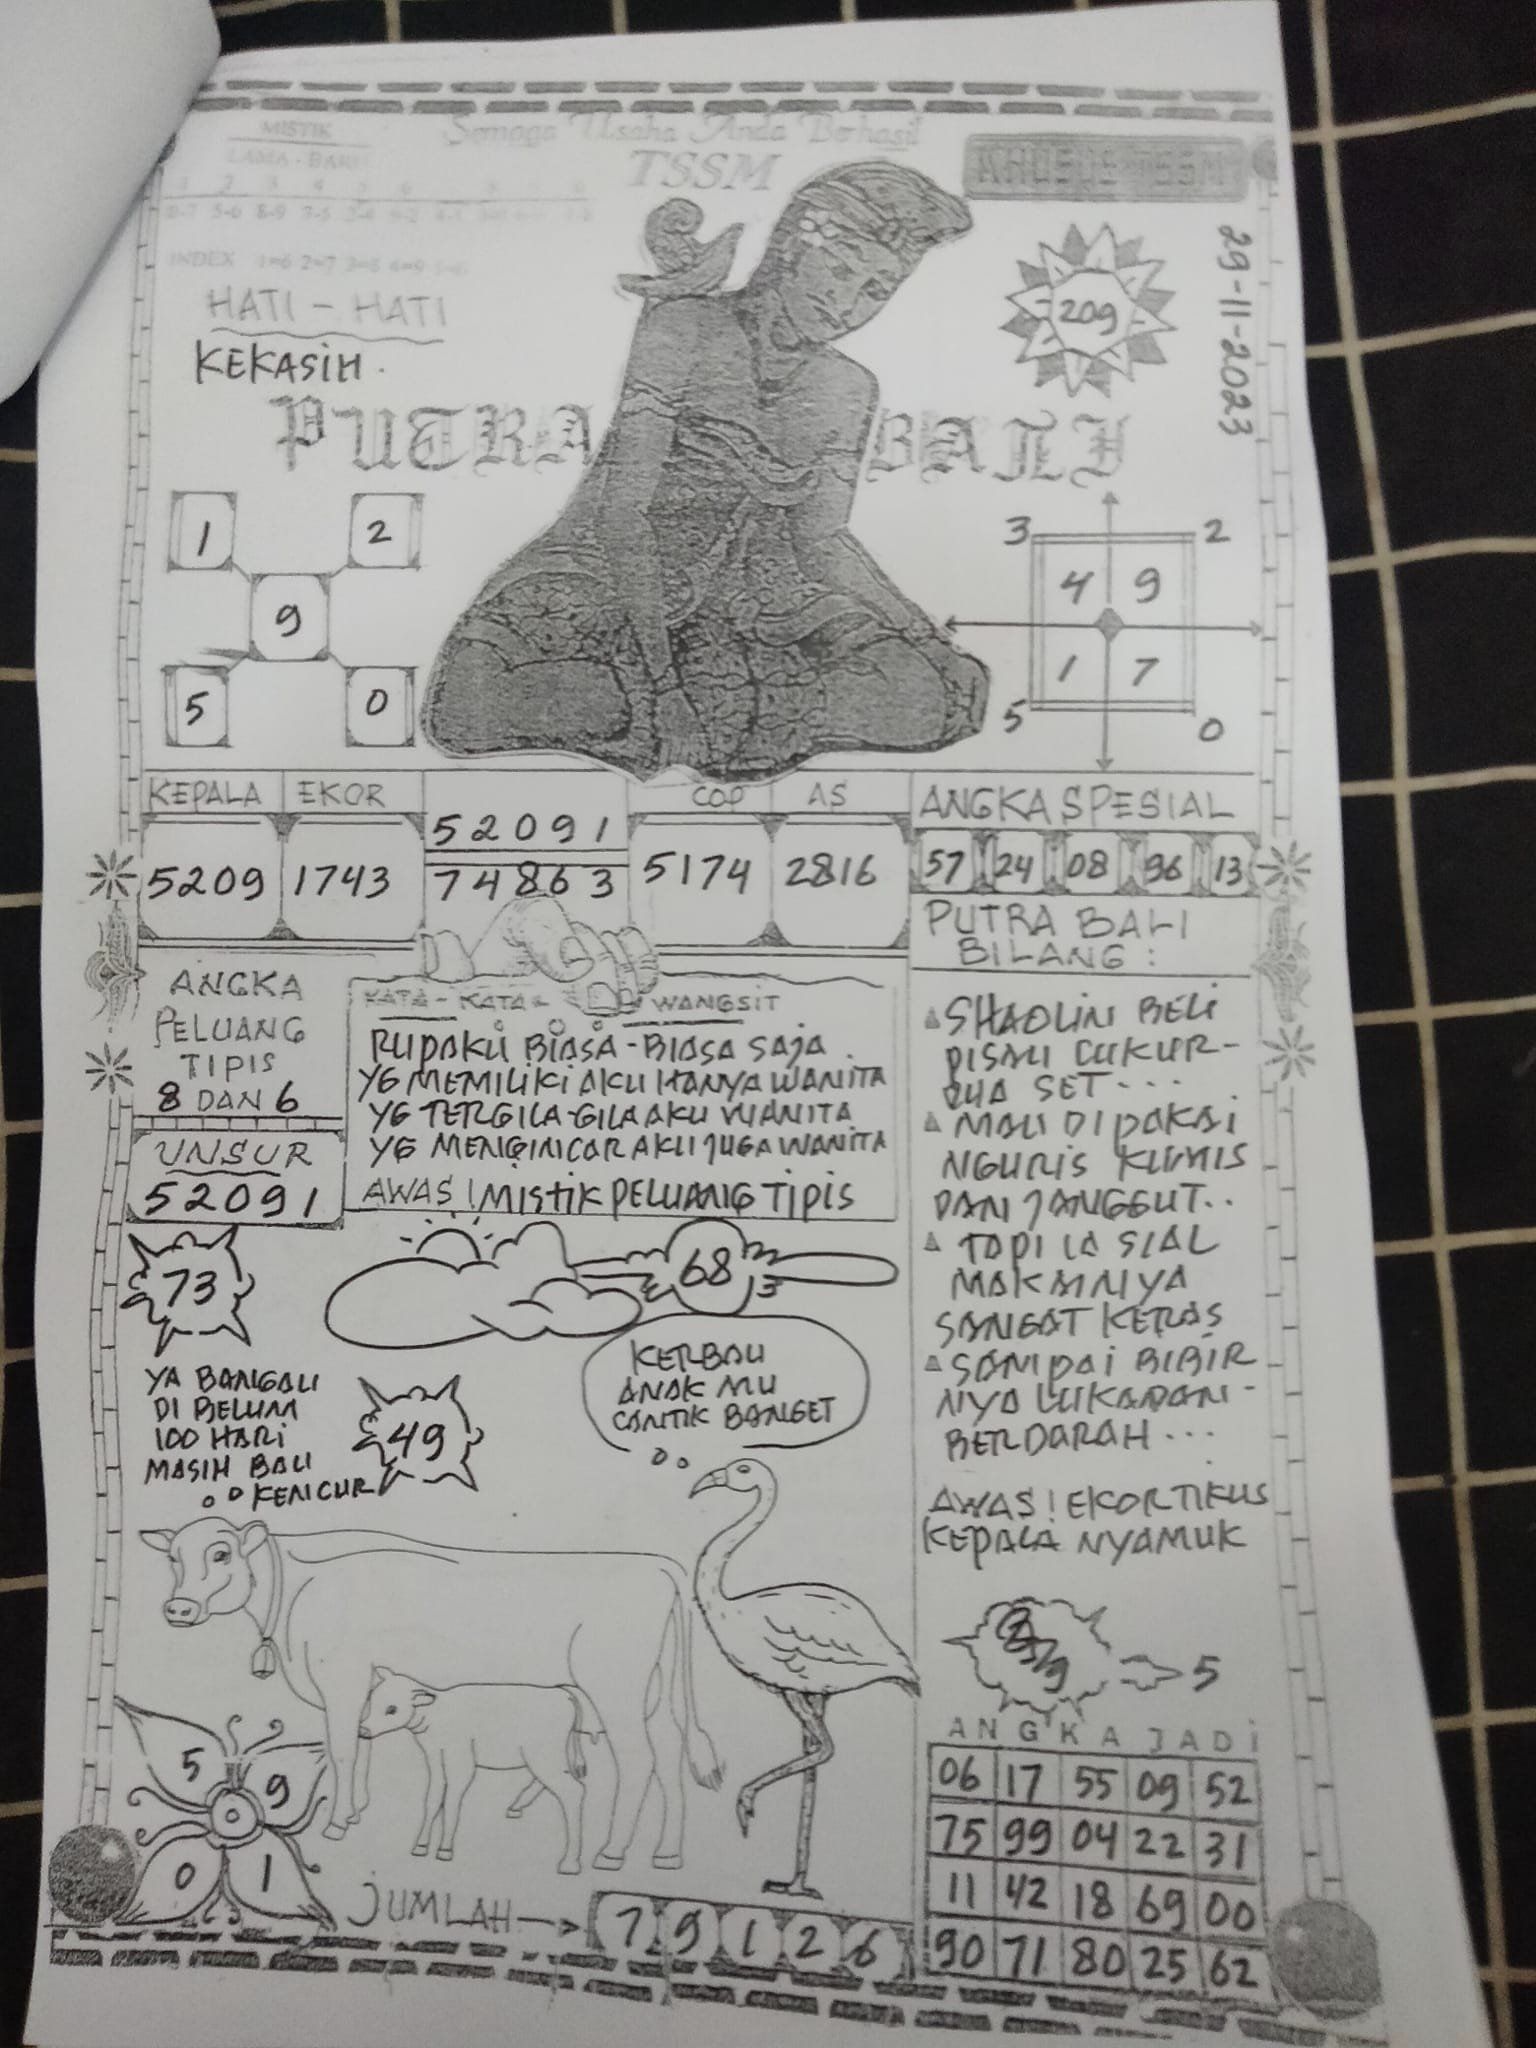 MISTIK
LAMA - BARU
Semoga Usaha Anda Berhasil
TSSM
KHUSUS TSSM
INDEX 1=6 2=7 3=8 4=9 5=0
HATI - HATI
KEKASIH.
209
29-11-2023
PUTRA BALI
1 2
9
5 0
3 2
4 9
1 7
5 0
KEPALA EKOR
5209 1743
52091
74863
COP AS
5174 2816
ANGKA SPESIAL
57 24 08 96 13
PUTRA BALI
BILANG :
ANGKA
PELUANG
TIPIS
8 DAN 6
UNSUR
52091
KATA - KATA WANGSIT
RUPAKU BIASA - BIASA SAJA
YG MEMILIKI AKU HANYA WANITA
YG TERGILA-GILA AKU WANITA
YG MENGINCAR AKU JUGA WANITA
AWAS ! MISTIK PELUANG TIPIS
SHAOLIN BELI
PISAU CUKUR-
DUA SET ---
MAU DI PAKAI
NGURIS KUMIS
DAN JANGGUT..
TAPI IA SIAL
MAKAINYA
SANGAT KERAS
SAMPAI BIBIR
NYA LUKA DAN -
BERDARAH ...
AWAS ! EKOR TIKUS
KEPALA NYAMUK
73
68
YA BANGAU
DI BELUM
100 HARI
MASIH BAU
KENCUR
49
KERBAU
ANAK MU
CANTIK BANGET
5
ANGKA JADI
06 17 55 09 52
75 99 04 22 31
11 42 18 69 00
90 71 80 25 62
5 9
0 1
JUMLAH
7 9 1 2 6